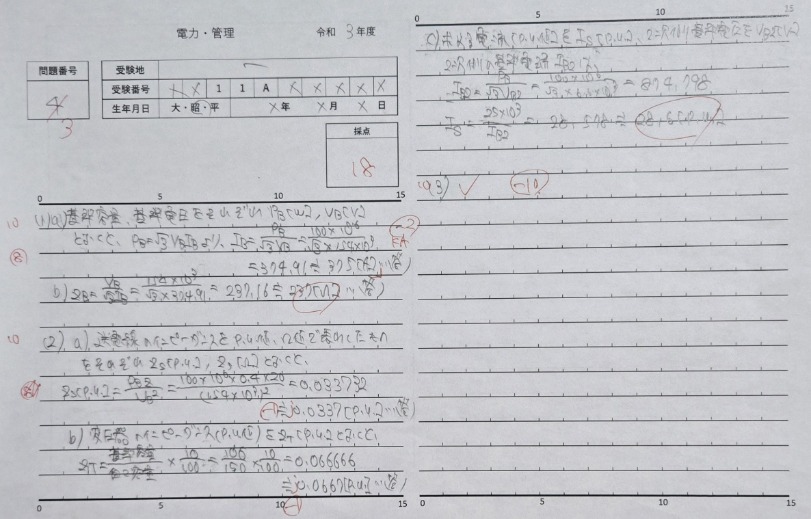 電力・管理
令和 3年度
問題番号
4
3
受験地
受験番号
X X 1 1 A X X X X X
生年月日
大・昭・平 X年 X月 X日
採点
18
0 5 10 15
10 (1) a) 基準容量、基準電圧をそれぞれPB[W], VB[V]
とおくと、PB=√3VBIBより、IB=PB/√3VB=100×10⁶/√3×154×10³
8
=374.91≒375[A]…(答)
b) ZB=VB/√3IB=154×10³/√3×374.91=237.16≒237[Ω]…(答)
10 (2) a) 送電線のインピーダンスをp.u.値、Ω値で表わしたもの
をそれぞれ
とおくと、
=100×10⁶×0.4×20/(154×10³)²=0.033732
-1 ≒0.0337[p.u.]…(答)
b) 変圧器のインピーダンス(p.u.値)をZT[p.u.]とおくと、
ZT=基準容量/ ×10/100=100/150×10/100=0.066666
≒0.0667[p.u.]…(答)
-1
0 5 10 15
0 5 10 15
c) 求める電流[p.u.値]をIS[p.u.]、2次側基準電圧をVB2[V]
2次側の基準電流IB2は、
IB2=PB/√3VB2=100×10⁶/√3×66×10³=874.798
IS=25×10³/IB2=28.578≒28.6[p.u.]
(3) -10
0 5 10 15